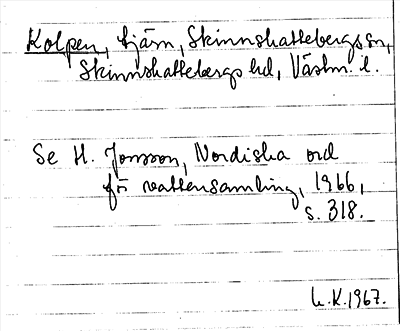 Kolpen, tjärn, Skinnskattebergs sn,
Skinnskattebergs hd, Västm. l.
Se H. Jonsson, Nordiska ord
för vattensamling, 1966,
s. 318.
L.K.1967.